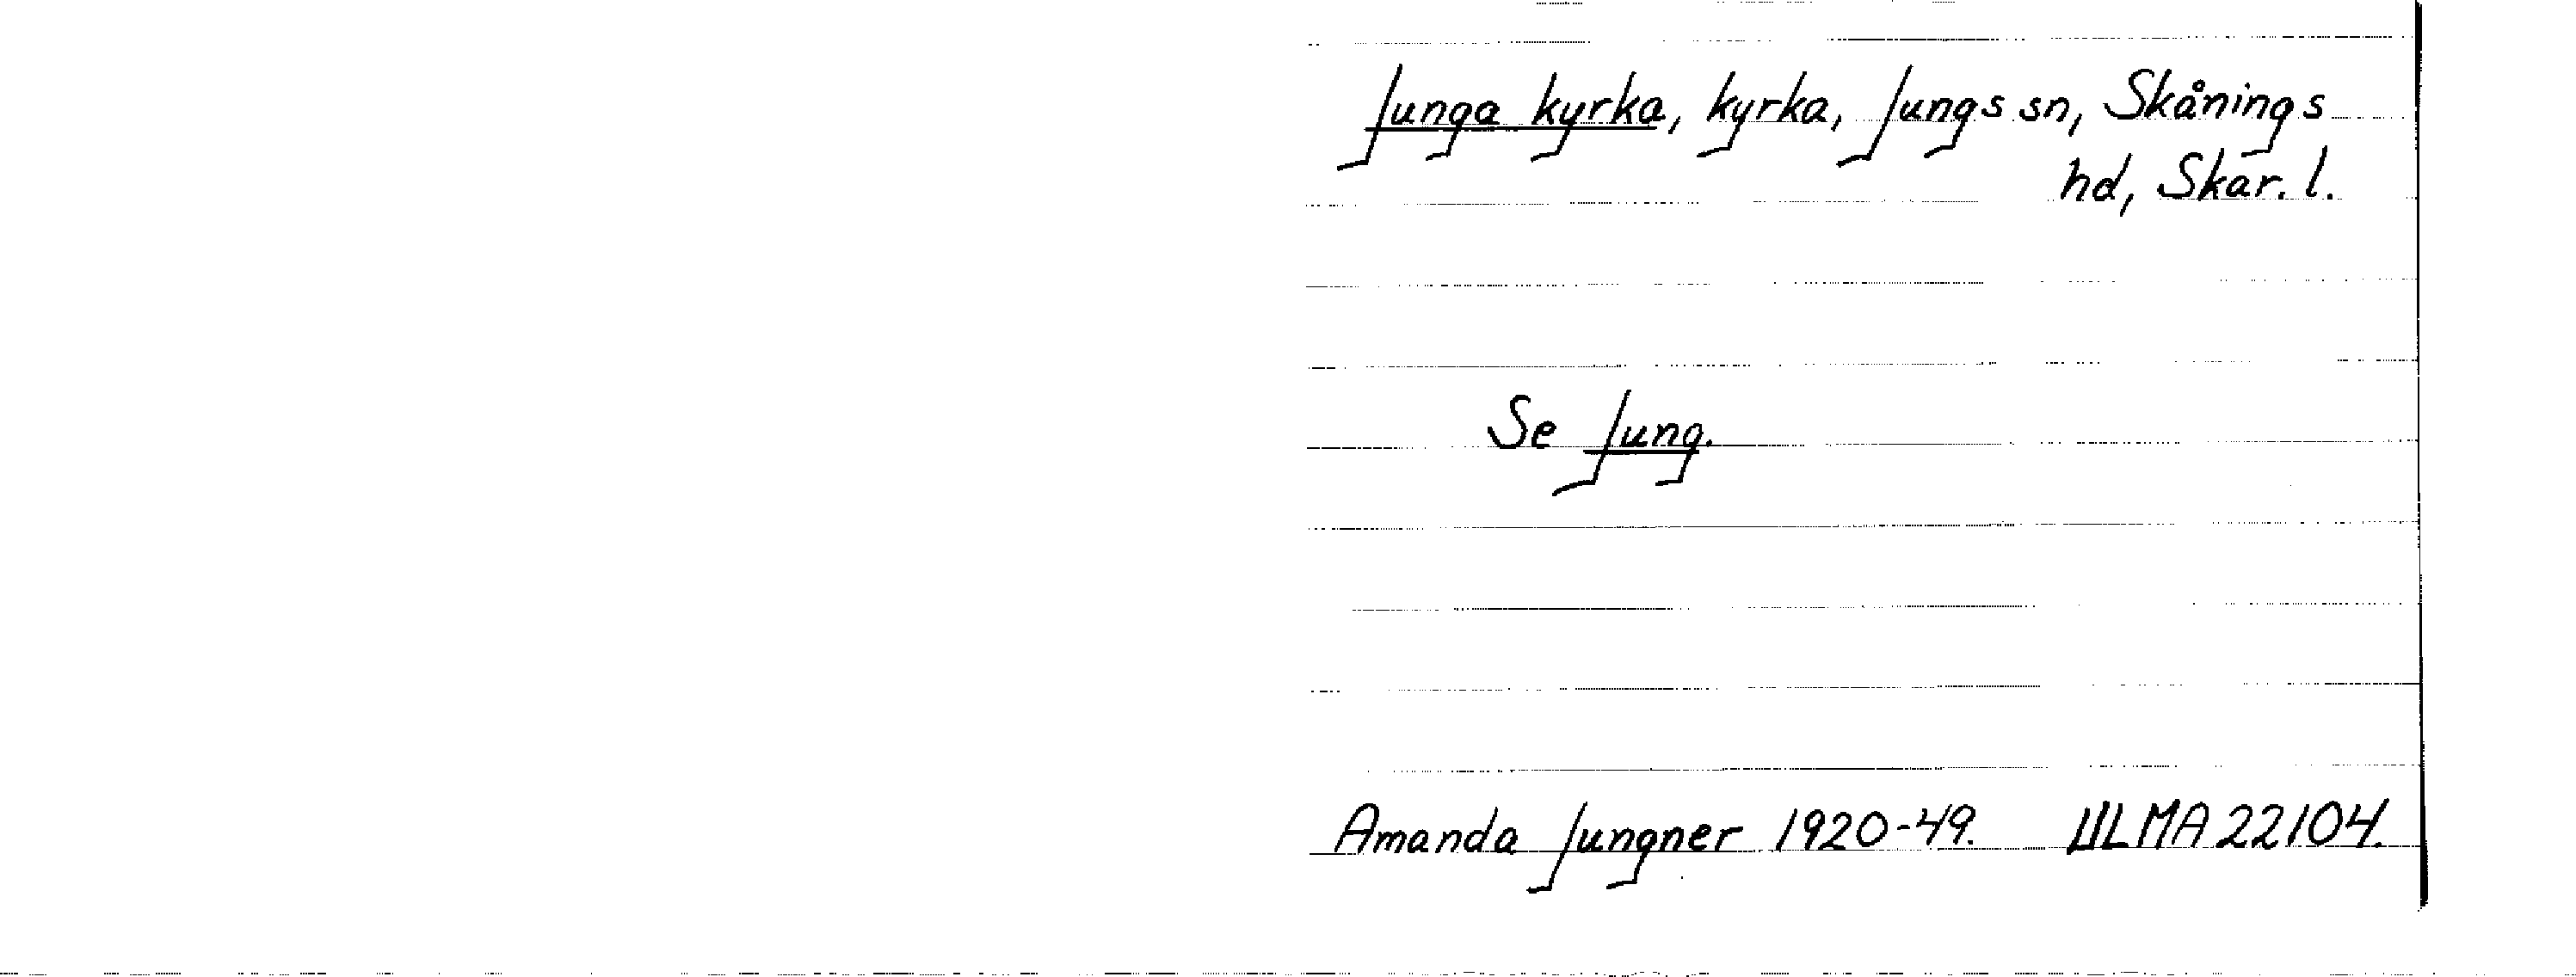 Junga kyrka, kyrka, Jungs sn, Skånings
hd, Skar. l.
Se Jung.
Amanda Jungner 1920-49. ULMA 22104.